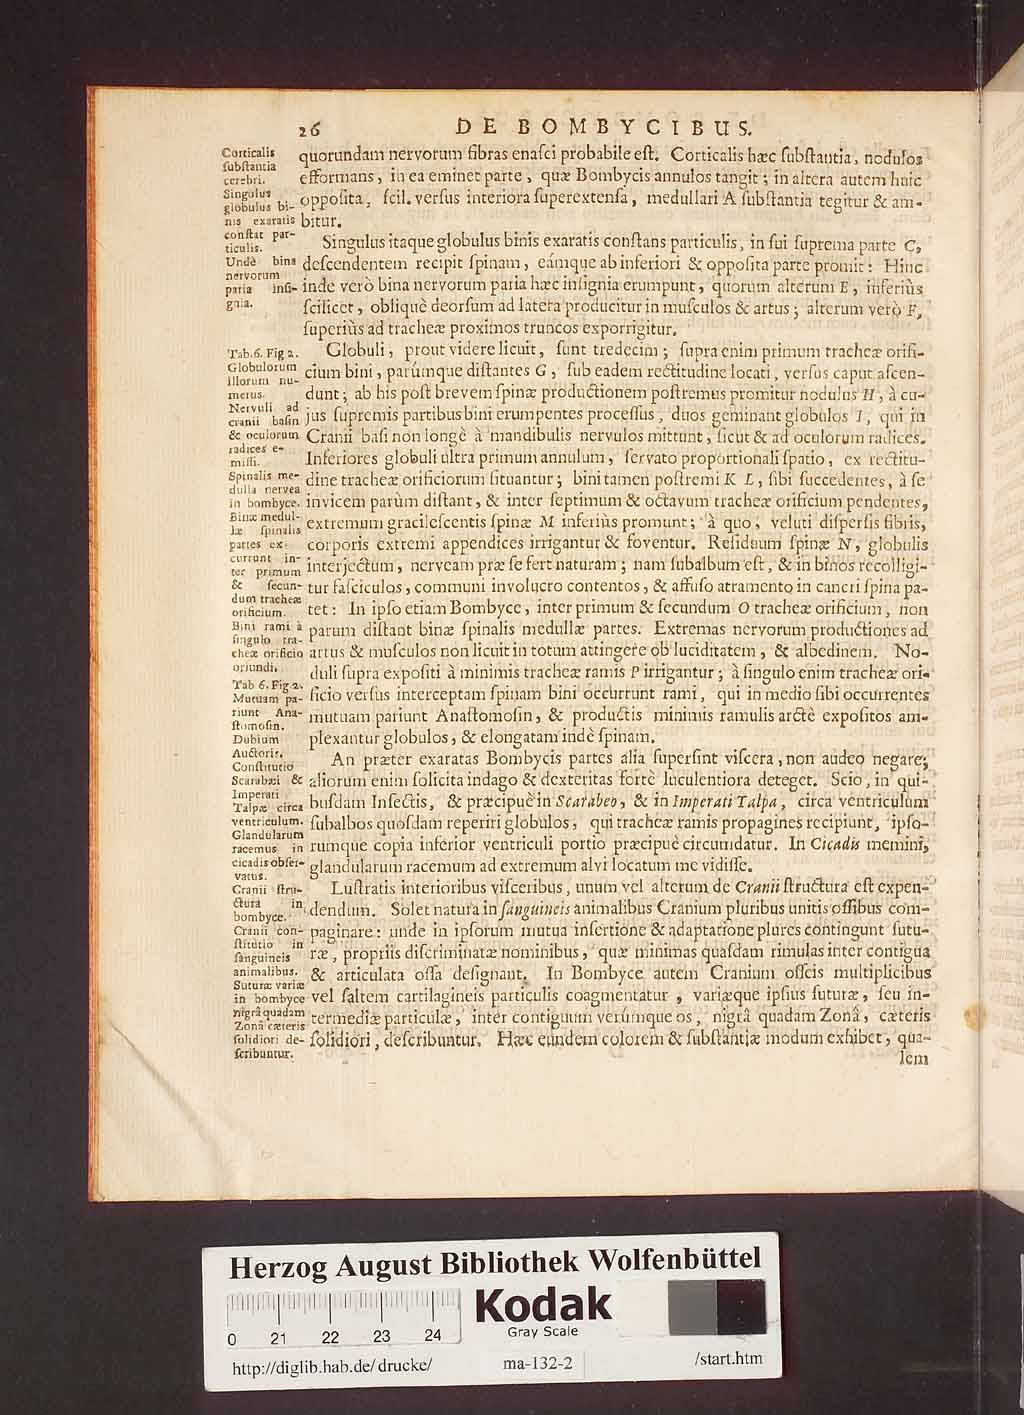 26 DE BOMBYCIBUS.
Corticalis
ſubſtantia
cerebri.
Singulus
globulus bi-
nis exaratis
conſtat par-
ticulis.
Undè bina
nervorum
paria inſi-
gnia.
quorundam nervorum fibras enaſci probabile eſt. Corticalis hæc ſubſtantia, nodulos
efformans, in ea eminet parte, quæ Bombycis annulos tangit; in altera autem huic
oppoſita, ſcil. verſus interiora ſuperextenſa, medullari A ſubſtantia tegitur & am-
bitur.
Singulus itaque globulus binis exaratis conſtans particulis, in ſui ſuprema parte C,
deſcendentem recipit ſpinam, eámque ab inferiori & oppoſita parte promit: Hinc
inde verò bina nervorum paria hæc inſignia erumpunt, quorum alterum E, inferiùs
ſcilicet, obliquè deorſum ad latera producitur in muſculos & artus; alterum verò F,
ſuperiùs ad tracheæ proximos truncos exporrigitur.
Tab. 6. Fig 2.
Globulorum
illorum nu-
merus.
Nervuli ad
cranii baſin
& oculorum
radices e-
miſſi.
Spinalis me-
dulla nervea
in bombyce.
Binæ medul-
læ ſpinalis
partes ex-
currunt in-
ter primum
& ſecun-
dum tracheæ
orificium.
Bini rami à
ſingulo tra-
cheæ orificio
oriundi.
Tab 6. Fig 2.
Mutuam pa-
riunt Ana-
ſtomoſin.
Globuli, prout videre licuit, ſunt tredecim; ſupra enim primum tracheæ orifi-
cium bini, parúmque diſtantes G, ſub eadem rectitudine locati, verſus caput aſcen-
dunt; ab his poſt brevem ſpinæ productionem poſtremus promitur nodulus H, à cu-
jus ſupremis partibus bini erumpentes proceſſus, duos geminant globulos I, qui in
Cranii baſi non longè à mandibulis nervulos mittunt, ſicut & ad oculorum radices.
Inferiores globuli ultra primum annulum, ſervato proportionali ſpatio, ex rectitu-
dine tracheæ orificiorum ſituantur; bini tamen poſtremi K L, ſibi ſuccedentes, à ſe
invicem parùm diſtant, & inter ſeptimum & octavum tracheæ orificium pendentes,
extremum gracileſcentis ſpinæ M inferiùs promunt; à quo, veluti diſperſis fibris,
corporis extremi appendices irrigantur & foventur. Reſiduum ſpinæ N, globulis
interjectum, nerveam præ ſe fert naturam; nam ſubalbum eſt, & in binos recolligi-
tur faſciculos, communi involucro contentos, & affuſo atramento in cancri ſpina pa-
tet: In ipſo etiam Bombyce, inter primum & ſecundum O tracheæ orificium, non
parum diſtant binæ ſpinalis medullæ partes. Extremas nervorum productiones ad
artus & muſculos non licuit in totum attingere ob luciditatem, & albedinem. No-
duli ſupra expoſiti à minimis tracheæ ramis P irrigantur; à ſingulo enim tracheæ ori-
ficio verſus interceptam ſpinam bini occurrunt rami, qui in medio ſibi occurrentes
mutuam pariunt Anaſtomoſin, & productis minimis ramulis arctè expoſitos am-
plexantur globulos, & elongatam indè ſpinam.
Dubium
Auctoris.
Conſtitutio
Scarabæi &
Imperati
Talpæ circa
ventriculum.
Glandularum
racemus in
cicadis obſer-
vatus.
An præter exaratas Bombycis partes alia ſuperſint viſcera, non audeo negare;
aliorum enim ſolicita indago & dexteritas fortè luculentiora deteget. Scio, in qui-
buſdam Inſectis, & præcipuè in Scarabeo, & in Imperati Talpa, circa ventriculum
ſubalbos quoſdam reperiri globulos, qui tracheæ ramis propagines recipiunt, ipſo-
rumque copia inferior ventriculi portio præcipuè circumdatur. In Cicadis memini,
glandularum racemum ad extremum alvi locatum me vidiſſe.
Cranii ſtru-
ctura in
bombyce.
Cranii con-
ſtitutio in
ſanguineis
animalibus.
Suturæ variæ
in bombyce
nigrâ quadam
Zonâ cæteris
ſolidiori de-
ſcribuntur.
Luſtratis interioribus viſceribus, unum vel alterum de Cranii ſtructura eſt expen-
dendum. Solet natura in ſanguineis animalibus Cranium pluribus unitis oſſibus com-
paginare: unde in ipſorum mutua inſertione & adaptatione plures contingunt ſutu-
ræ, propriis diſcriminatæ nominibus, quæ minimas quaſdam rimulas inter contigua
& articulata oſſa deſignant. In Bombyce autem Cranium oſſeis multiplicibus
vel ſaltem cartilagineis particulis coagmentatur, variæque ipſius ſuturæ, ſeu in-
termediæ particulæ, inter contiguum verúmque os, nigrâ quadam Zonâ, cæteris
ſolidiori, deſcribuntur. Hæc eundem colorem & ſubſtantiæ modum exhibet, qua-
lem
Herzog August Bibliothek Wolfenbüttel
0 21 22 23 24
Kodak
Gray Scale
http://diglib.hab.de/drucke/ ma-132-2 /start.htm